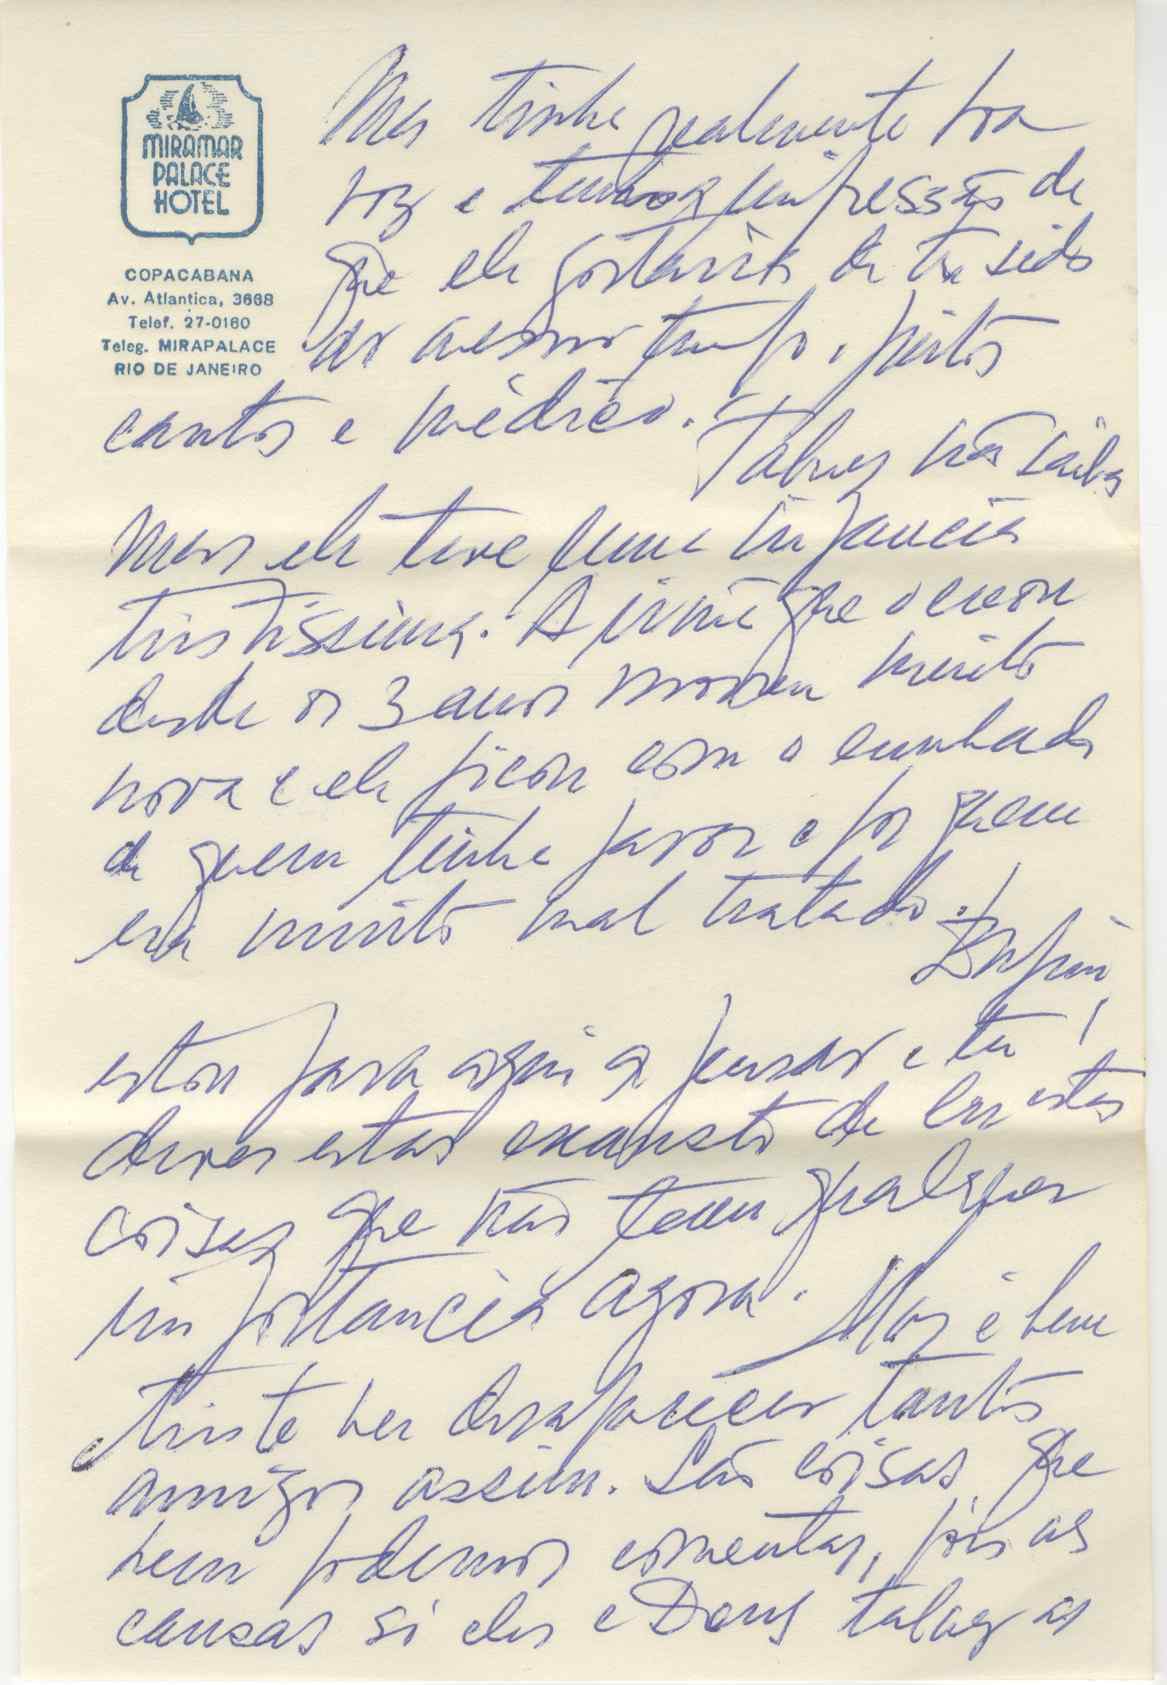 MIRAMAR
PALACE
HOTEL
COPACABANA
Av. Atlantica, 3668
Telef. 27-0160
Teleg. MIRAPALACE
RIO DE JANEIRO
Mas tinha realmente boa
voz e tenho a impressão de
que ele gostaria de ter sido
ao mesmo tempo, pintor
cantor e médico. Talvez não saibas
mas ele teve uma infancia
tristissima. A irmã que o criou
desde os 3 anos morreu muito
nova e ele ficou com o cunhado
de quem tinha pavor e por quem
era muito mal tratado. Enfim,
estou para aqui a pensar e tu
deves estar exausto de ler estas
coisas que não tem qualquer
importancia agora. Mas é bem
triste ver desaparecer tantos
amigos assim. São coisas que
nem podemos comentar, pois as
causas si eles e Deus talvez as